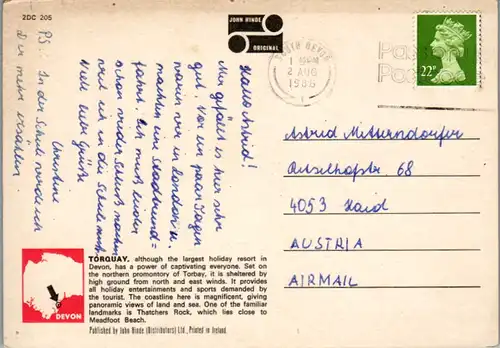 2DC 205
JOHN HINDE
ORIGINAL
SOUTH DEVON
2 AUG
22P
Hallo Astrid!
Mir gefällt es hier sehr
gut. Vor ein paar Tagen
waren wir in London u.
machten eine Stadtrund=
fahrt. Ich muß leider
schon wieder Schluß machen
weil ich in die Schule muß.
Viele liebe Grüße
Christine
PS: In der Schule werde ich
dir mehr erzählen
Astrid Mitterndorfer
68
4053 Haid
AUSTRIA
AIRMAIL
DEVON
TORQUAY, although the largest holiday resort in
Devon, has a power of captivating everyone. Set on
the northern promontory of Torbay, it is sheltered by
high ground from north and east winds. It provides
all holiday entertainments and sports demanded by
the tourist. The coastline here is magnificent, giving
panoramic views of land and sea. One of the familiar
landmarks is Thatchers Rock, which lies close to
Meadfoot Beach.
Published by John Hinde (Distributors) Ltd., Printed in Ireland.